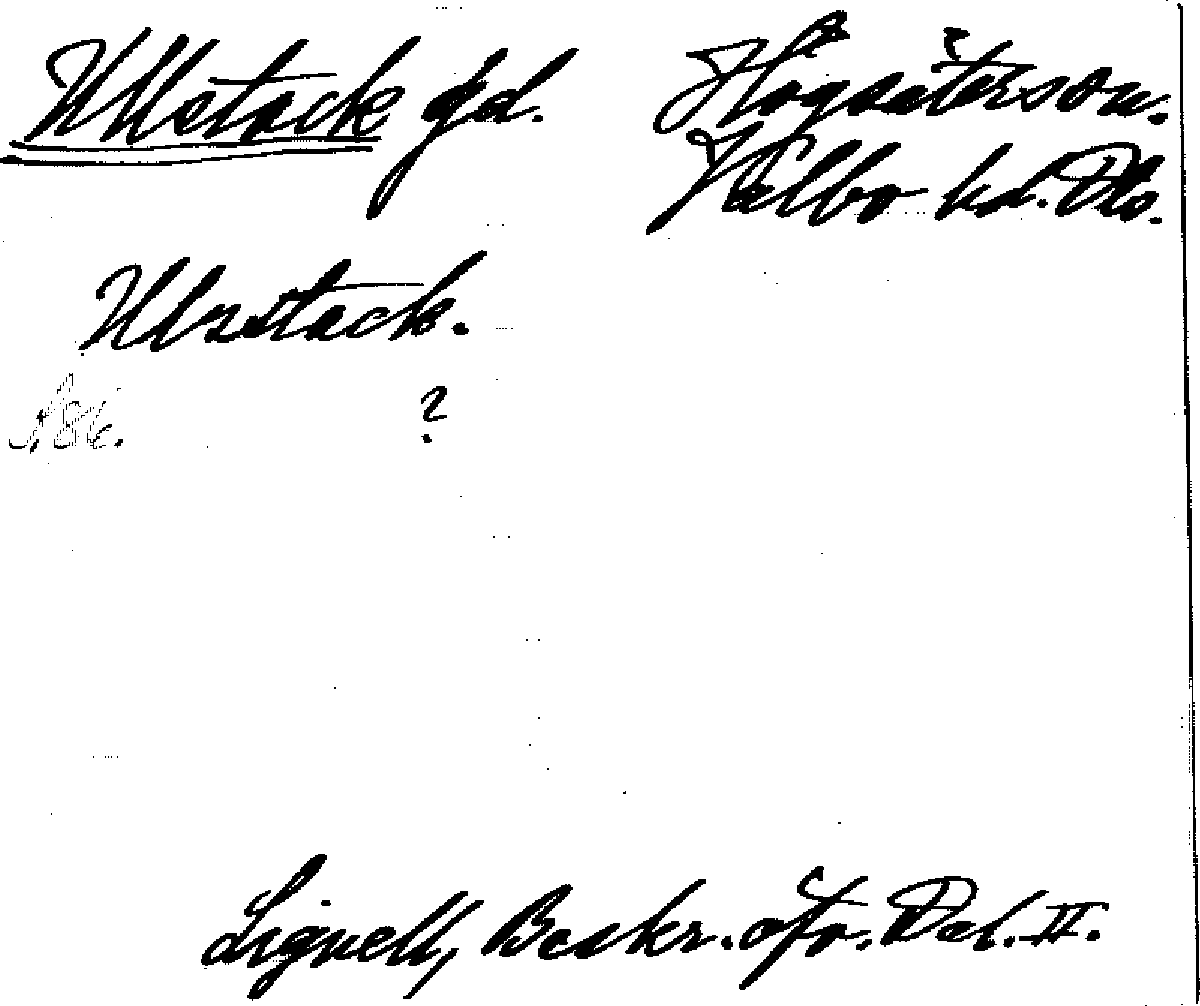 Ullstack gd. Högsäters sn.
Valbo hd. Dls.
Ulsstack.
s. 86. ?
Lignell, Beskr. öfv. Dal. II.